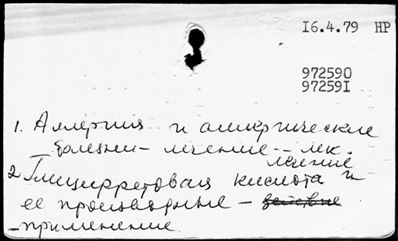 I6.4.79 НР
972590
97259I
1. Аллергия и аллергические
болезни - лечение -- лек.
лечение
2. Глицирретовая кислота и
ее производные - действие
- применение.